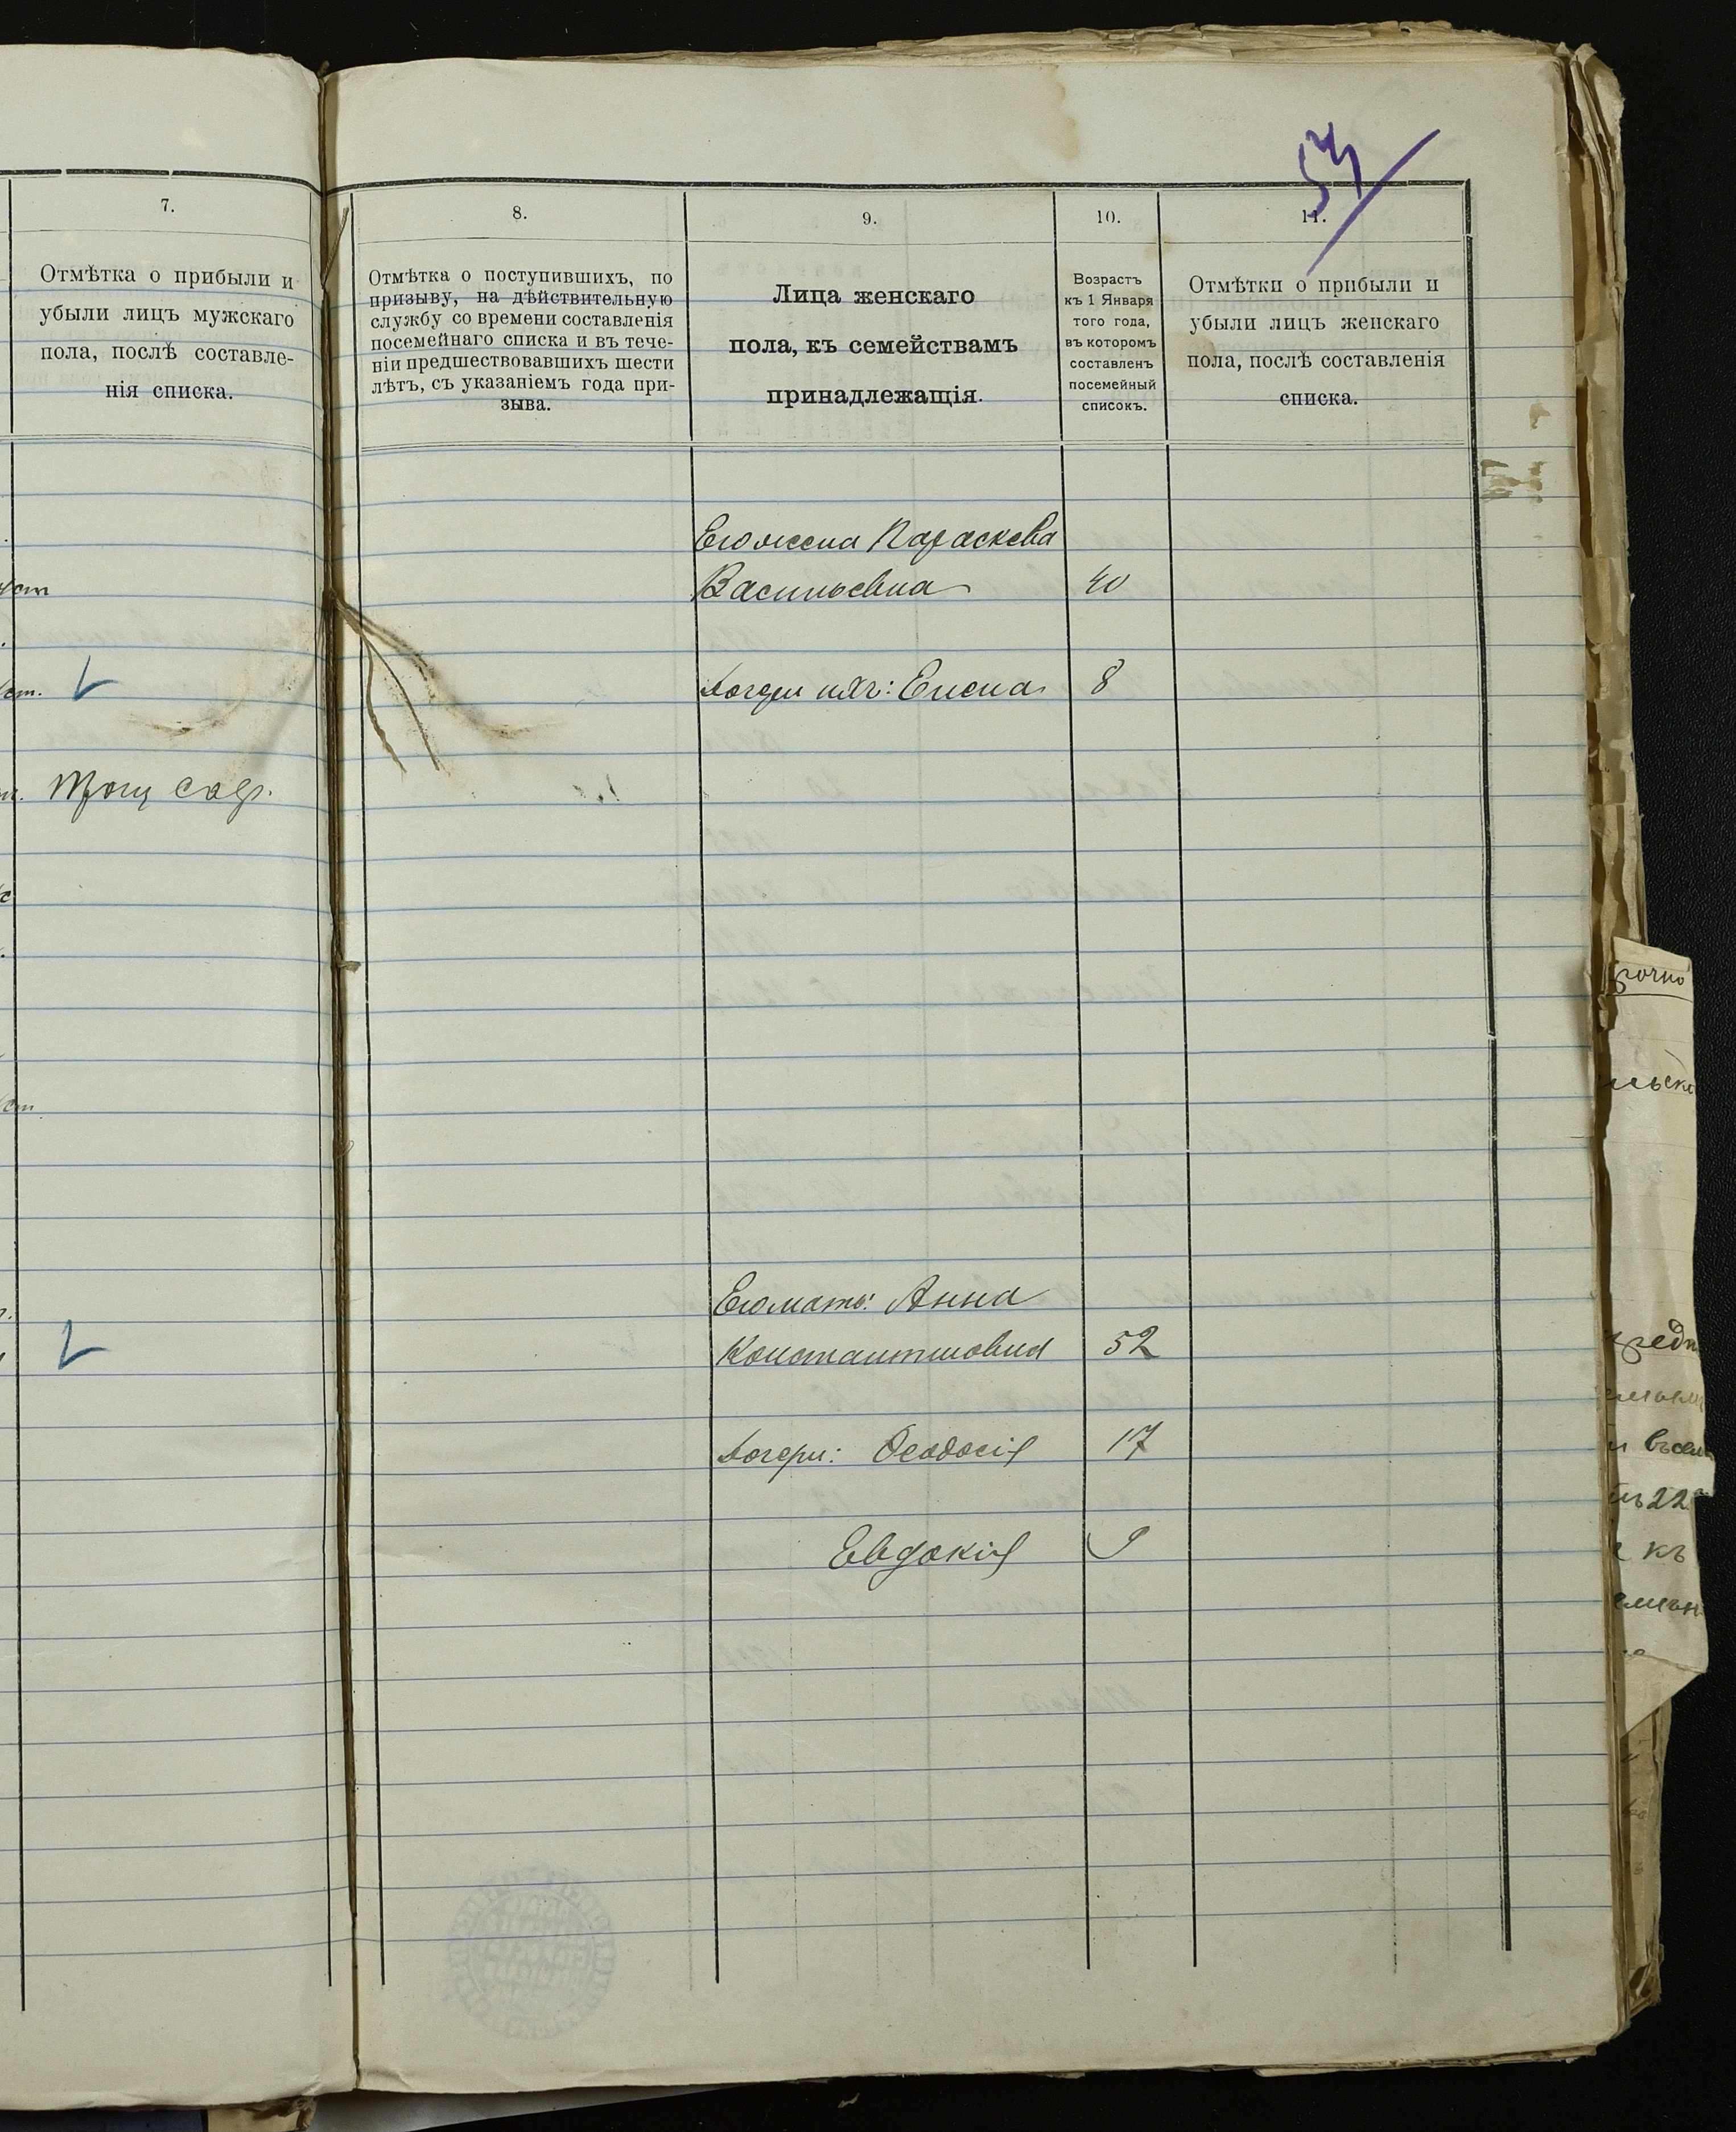 7.
Отмѣтка о прибыли и
убыли лицъ мужскаго
пола, послѣ составле-
нія списка.
8.
Отмѣтка о поступившихъ, по
призыву, на дѣйствительную
службу со времени составленія
посемейнаго списка и въ тече-
ніи предшествовавшихъ шести
лѣтъ, съ указаніемъ года при-
зыва.
9.
Лица женскаго
пола, къ семействамъ
принадлежащія.
10.
Возрастъ
къ 1 Января
того года,
въ которомъ
составленъ
посемейный
списокъ.
11.
Отмѣтки о прибыли и
убыли лицъ женскаго
пола, послѣ составленія
списка.
Его жена Параскева
Васильевна 40
Дочери Елена 8
Его мать: Анна
Константиновна 52
Дочери: Ѳеодосія 17
Евдокія 9